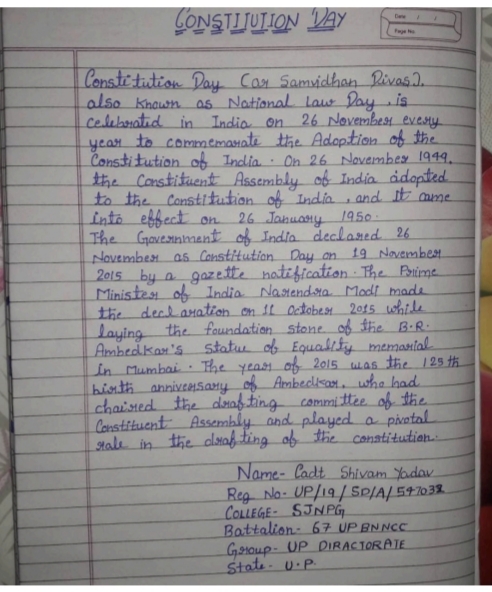 CONSTITUTION DAY
Date / /
Page No.
Constitution Day (or Samvidhan Divas),
also known as National Law Day, is
celebrated in India on 26 November every
year to commemorate the Adoption of the
Constitution of India. On 26 November 1949,
the Constituent Assembly of India adopted
to the Constitution of India, and It came
into effect on 26 January 1950.
The Government of India declared 26
November as Constitution Day on 19 November
2015 by a gazette notification. The Prime
Minister of India Narendra Modi made
the declaration on 11 October 2015 while
laying the foundation stone of the B.R.
Ambedkar's Statue of Equality memorial
in Mumbai. The year of 2015 was the 125th
birth anniversary of Ambedkar, who had
chaired the drafting committee of the
Constituent Assembly and played a pivotal
role in the drafting of the constitution.
Name- Cadt Shivam Yadav
Reg No- UP/19/SD/A/547038
COLLEGE- SJNPG
Battalion- 67 UP BN NCC
Group- UP DIRACTORATE
State- U.P.